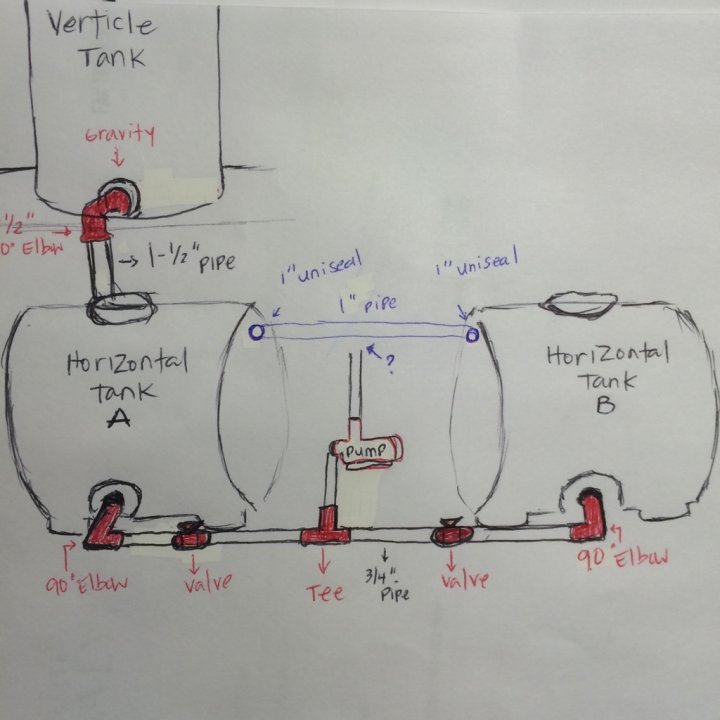 Verticle
Tank
Gravity
1/2"
0° Elbow
1-1/2" pipe
1" uniseal
1" uniseal
1" pipe
?
Horizontal
Tank
A
Horizontal
Tank
B
Pump
90° Elbow
valve
Tee
3/4"
Pipe
valve
90° Elbow